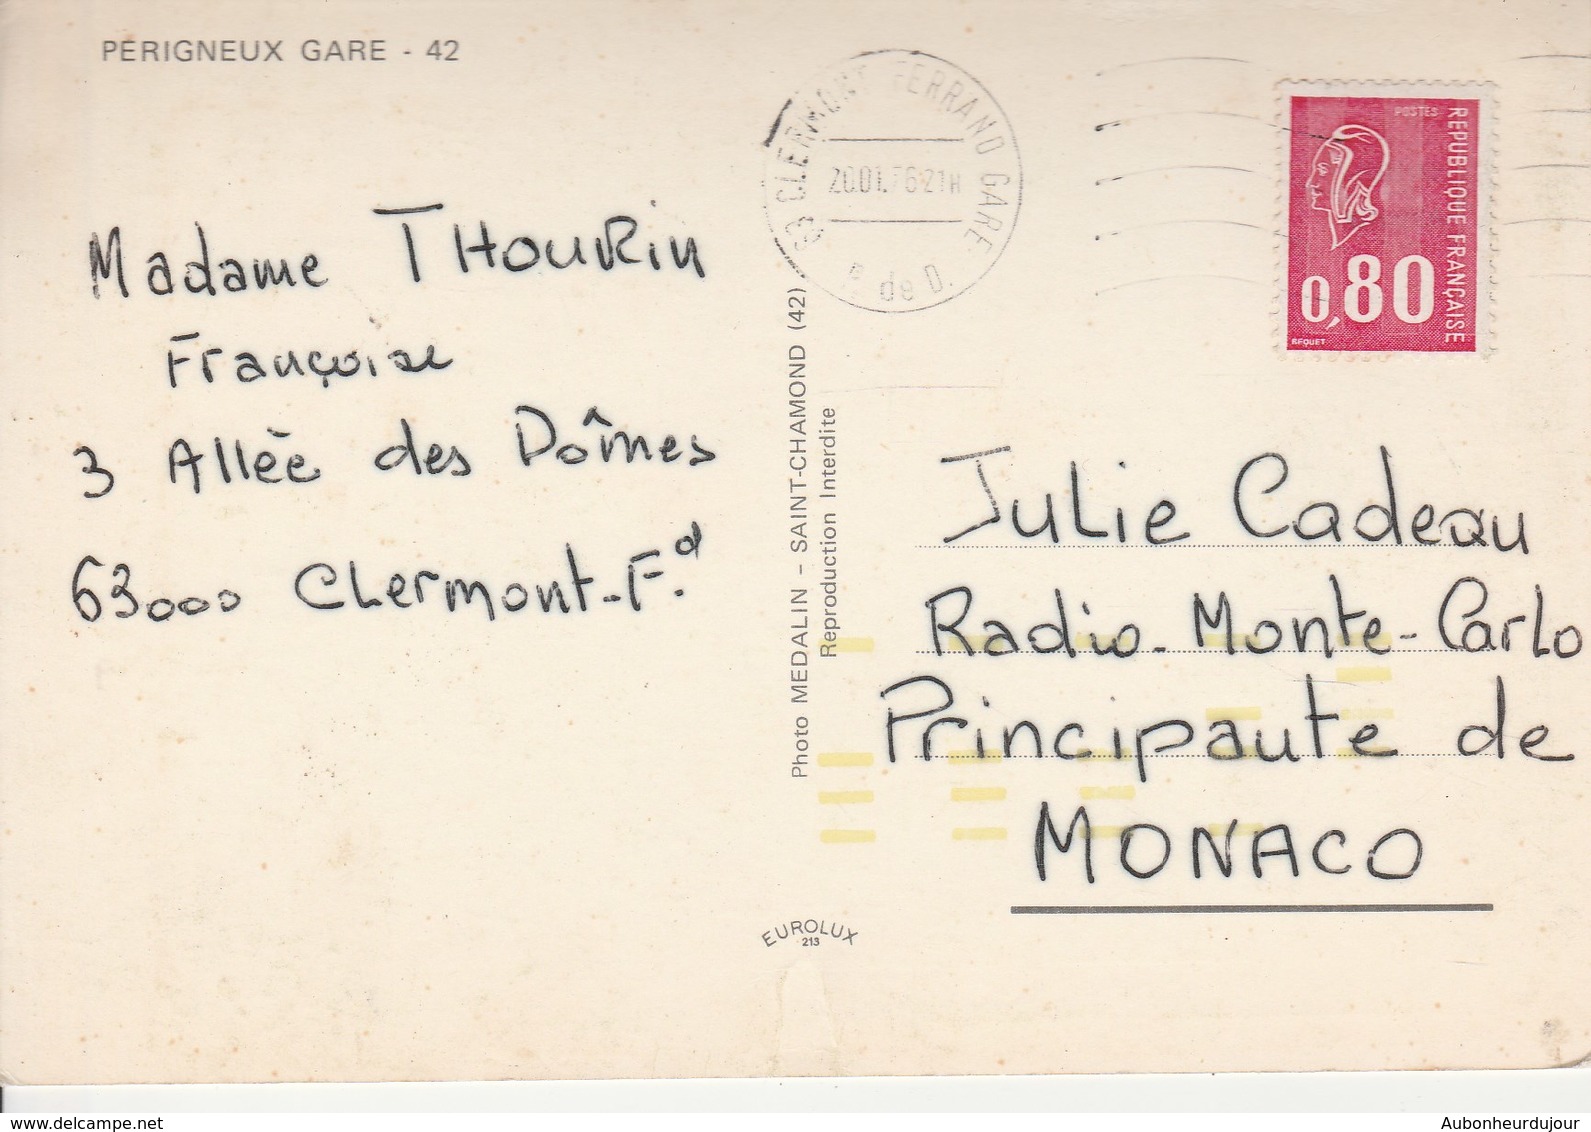 PERIGNEUX GARE - 42
63 CLERMONT FERRAND GARE
20.01.76 21H
P. de D.
POSTES
REPUBLIQUE FRANÇAISE
0,80
BEQUET
Madame THOURIN
Françoise
3 Allée des Dômes
63000 Clermont-F.d
Photo MEDALIN - SAINT-CHAMOND (42)
Reproduction Interdite
Julie Cadeau
Radio-Monte-Carlo
Principaute de
MONACO
EUROLUX
213
Aubonheurdujour